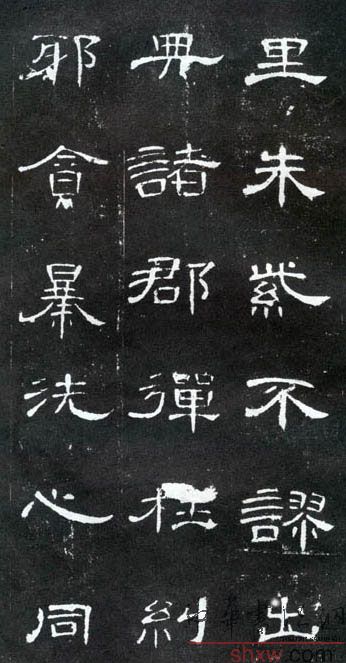 里朱紫不謬出
典諸郡彈枉糾
邪貪暴洗心同
shxw.com